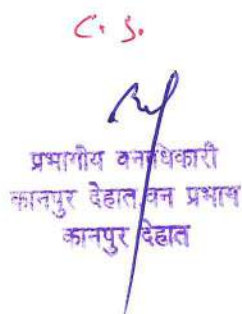 C. S.
प्रभागीय वनाधिकारी
कानपुर देहात वन प्रभाग
कानपुर देहात